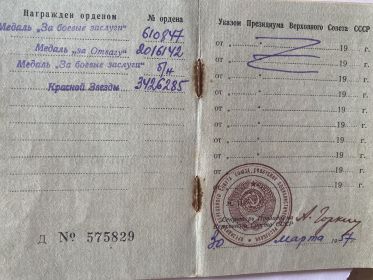 Награжден орденом № ордена
Медаль „За боевые заслуги“ 610847
Медаль „за Отвагу“ 2016142
Медаль „За боевые заслуги“ б/н
Красной Звезды 3426285
Д № 575829
Указом Президиума Верховного Совета СССР
от „ “ 19 г.
от „ “ 19 г.
от „ “ 19 г.
от „ “ 19 г.
от „ “ 19 г.
от „ “ 19 г.
от „ “ 19 г.
от „ “ 19 г.
от 19 г.
Секретарь Президиума
Верховного Совета СССР
А. Горкин
30 марта 1957